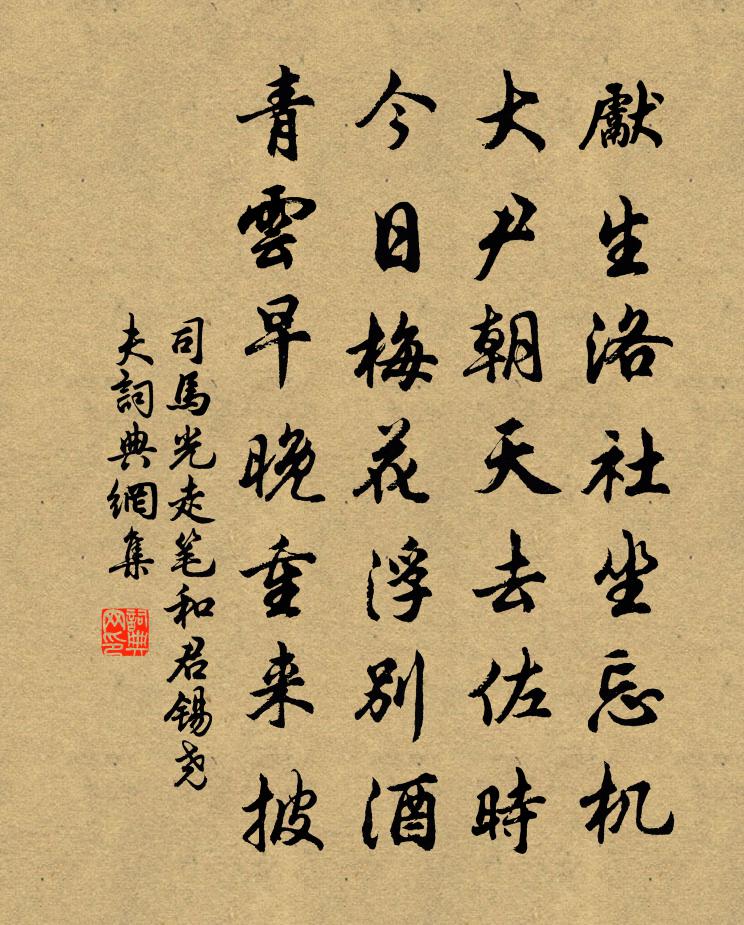 獻生洛社坐忘机
大尹朝天去佐時
今日梅花浮別酒
青雲早晚重来披
司馬光走笔和君锡尧
夫詞典網集
詞典网印